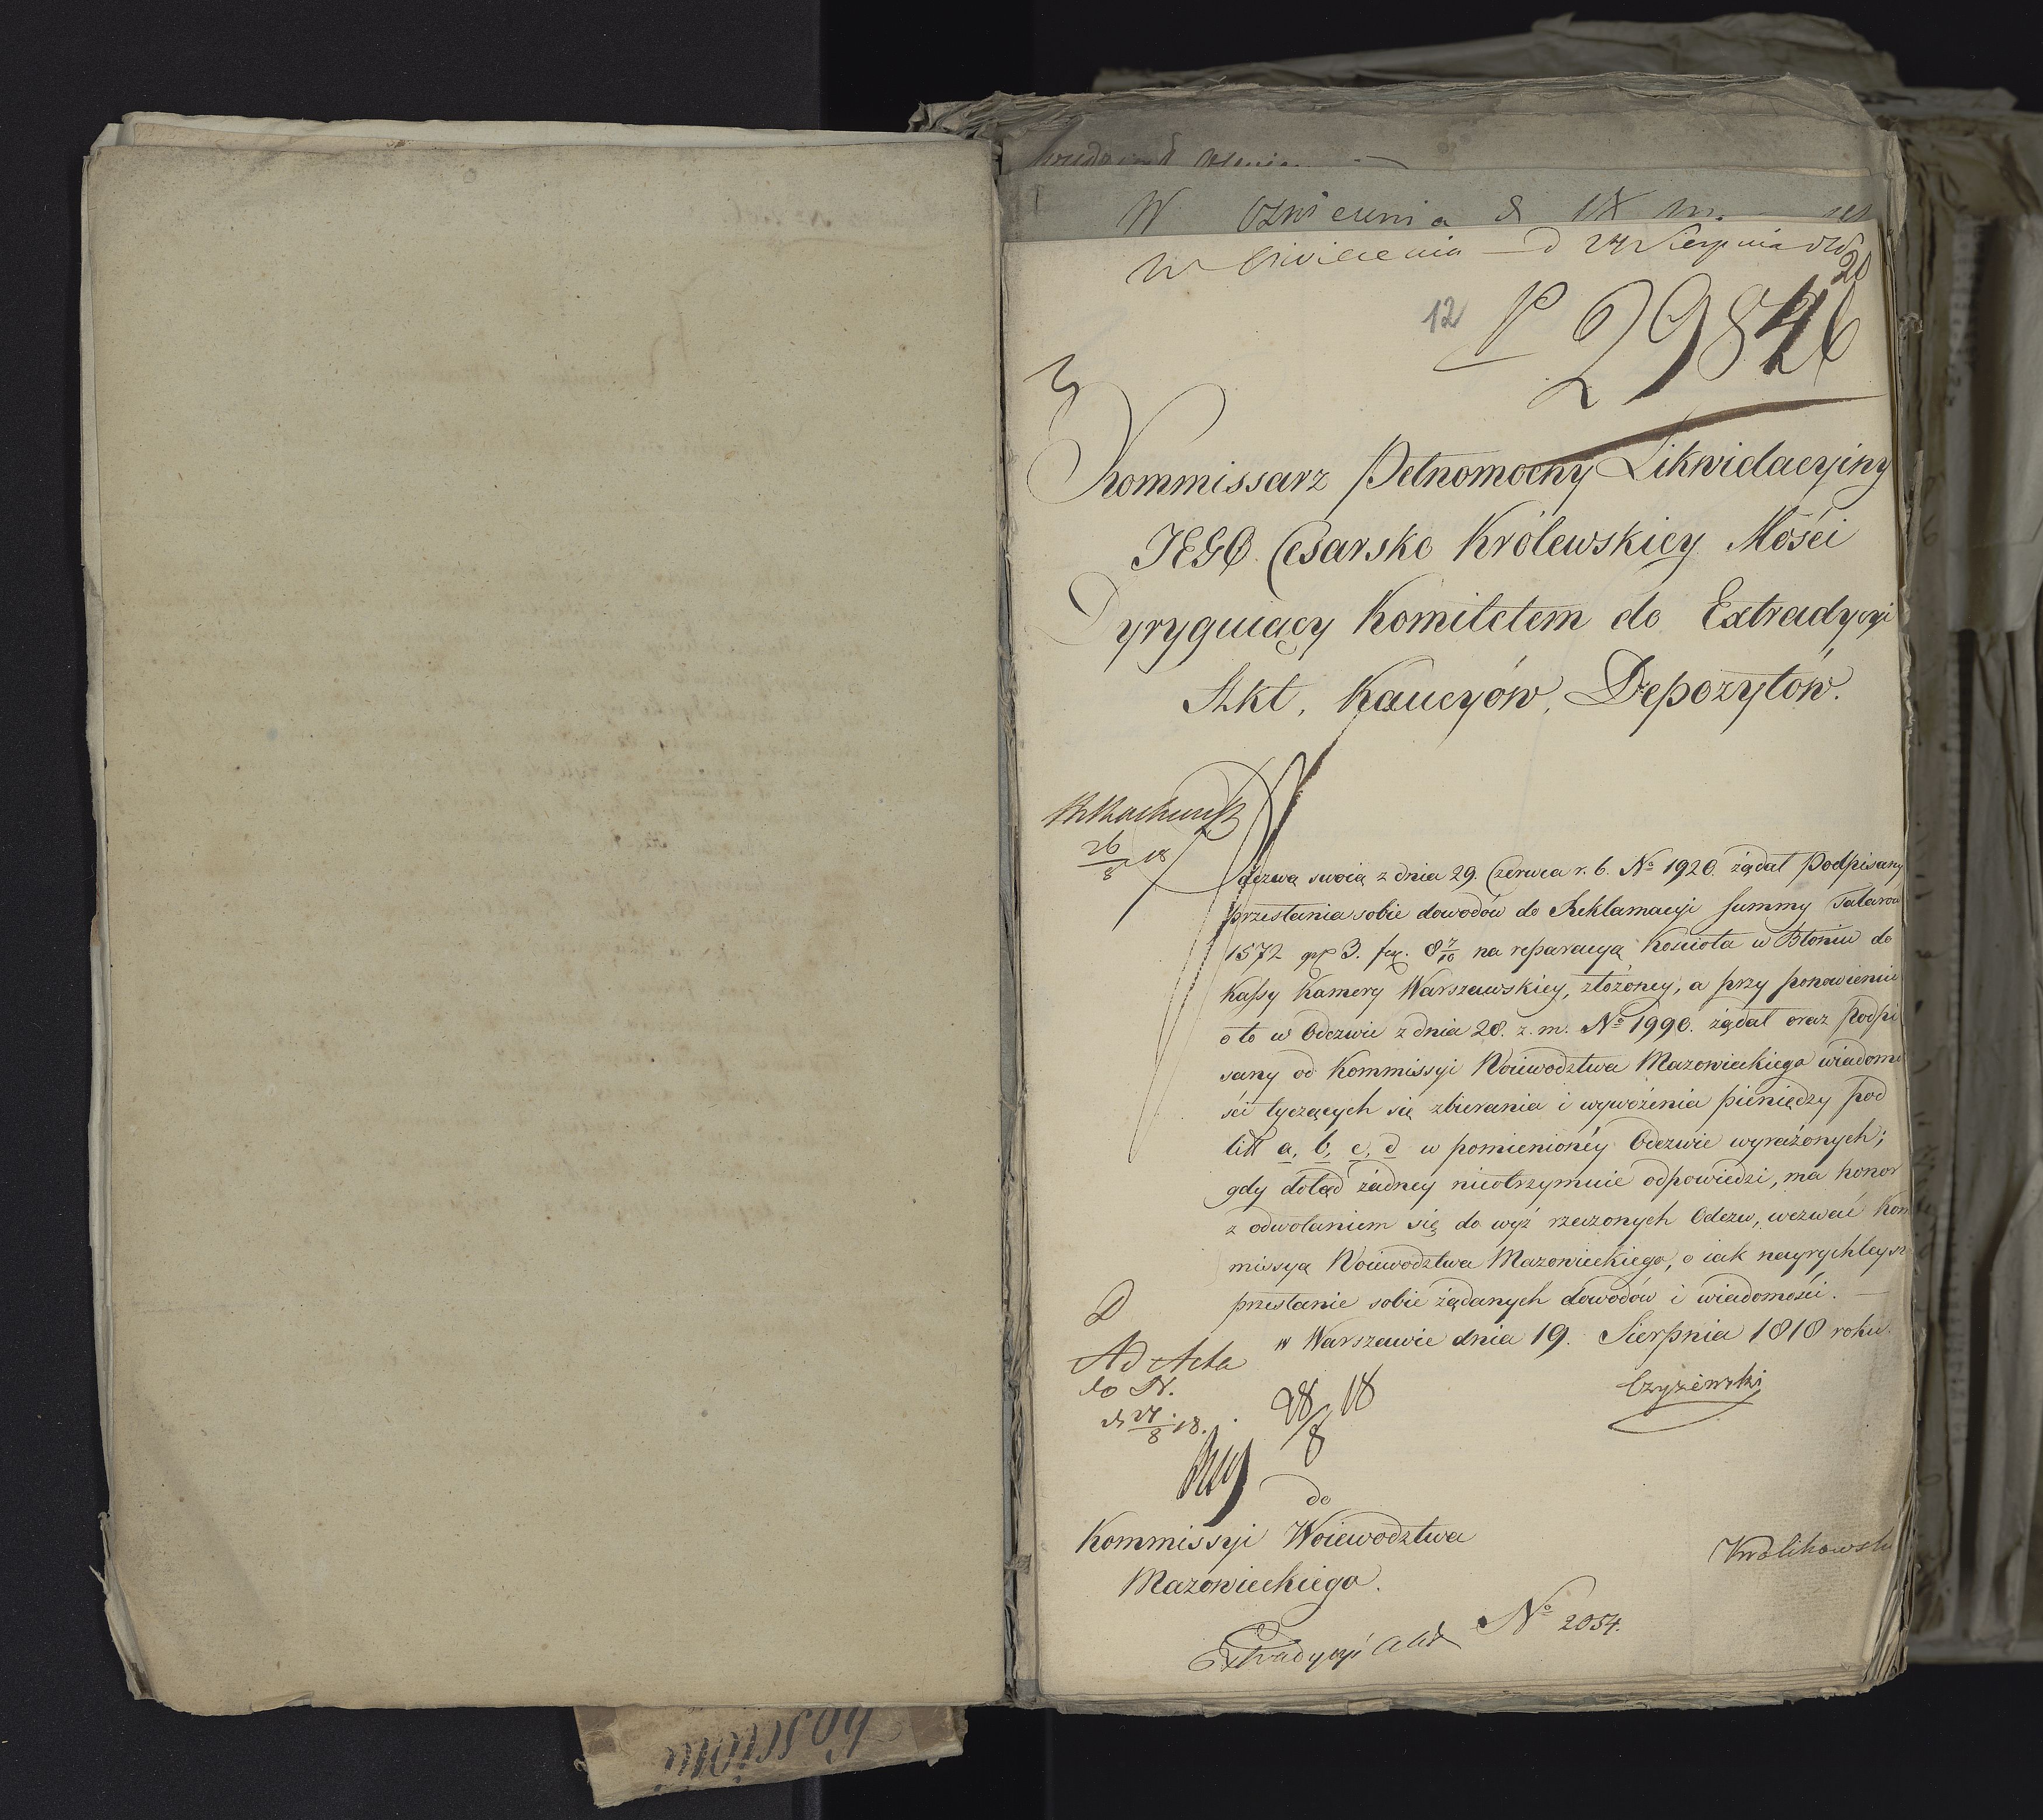 W Ozwiecenia d
W Oswiecenia d 24 Sierpnia
20
12
P 29846
Kommissarz Pełnomocny Likwidacyiny
JEGO Cesarsko Królewskiey Mości
Dyryguiący Komitetem do Extradycyi
Akt, Kaucyów, Depozytów.
26/8 18
Odezwą swoią z dnia 29. Czerwca r. b. No 1920. żądał Podpisany
przesłania sobie dowodów do Reklamacyi summy Talarów
1572 gr 3. fen. 8 7/10 na reparacyą Kościoła w Błoniu do
Kassy Kamery Warszawskiey, złożoney, a przy ponowieniu
o to w Odezwie z dnia 28. z. m. No 1990. żądał oraz Podpi
sany od Kommissyi Woiewodztwa Mazowieckiego wiadomo
ści tyczących się zbierania i wywożenia pieniędzy pod
litt a, b, c, d w pomienionéy Odezwie wyrażonych;
gdy dotąd żadney nieotrzymuie odpowiedzi, ma honor
z odwołaniem się do wyż rzeczonych Odezw, wezwać Kom
missyą Woiewodztwa Mazowieckiego, o iak nayrychleysze
przesłanie sobie żądanych dowodów i wiadomości. —
w Warszawie dnia 19. Sierpnia 1818 roku.
Czyżewski
Ad Acta
do N.
d 27/8 18.
28/8 18
do
Kommissyi Woiewodztwa
Mazowieckiego.
Krolikowski
No 2054.
Extradycyi Akt